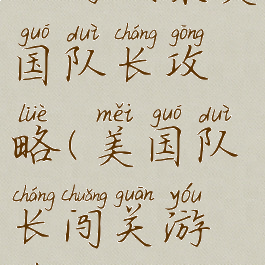 guó duì cháng gōng
国队长攻
lüè měi guó duì
略(美国队
cháng chuǎng guān yóu
长闯关游